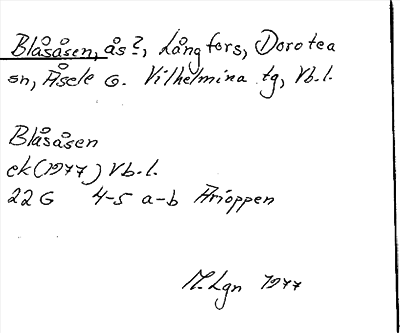 Blåsåsen, ås?, Långfors, Dorotea
sn, Åsele o. Vilhelmina tg, Vb.l.
Blåsåsen
ek (1977) Vb.l.
22 G 4-5 a-b Arioppen
M.Lgn 1977